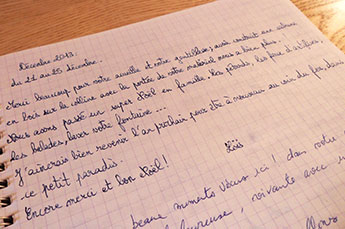 Décembre 2013.
du 21 au 28 Décembre.
Merci beaucoup pour votre accueil et votre gentillesse, avoir construit une cabane
en bois sur la colline avec la portée de votre matériel nous a bien plus.
Nous avons passé un super Noël en famille. Les pétards, les feux d'artifices,
les balades, laver votre fontaine...
J'aimerais bien revenir l'an prochain peut être à nouveau au coin du feu, dans
ce petit paradis.
Encore merci et bon Noël!
Loïs
beaux moments vécus ici! dans votre
heureuse, vivante avec